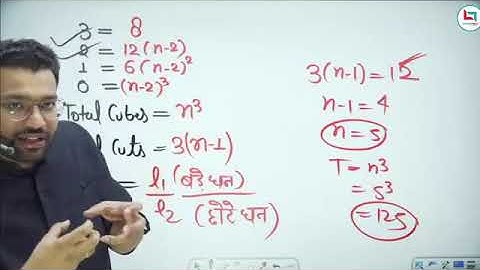 3 = 8
2 = 12(n-2)
1 = 6(n-2)²
0 = (n-2)³
Total Cubes = n³
Cuts = 3(n-1)
= l₁ (बड़े घन)
l₂ (छोटे घन)
3(n-1) = 12
n-1 = 4
n = 5
T = n³
= 5³
= 125